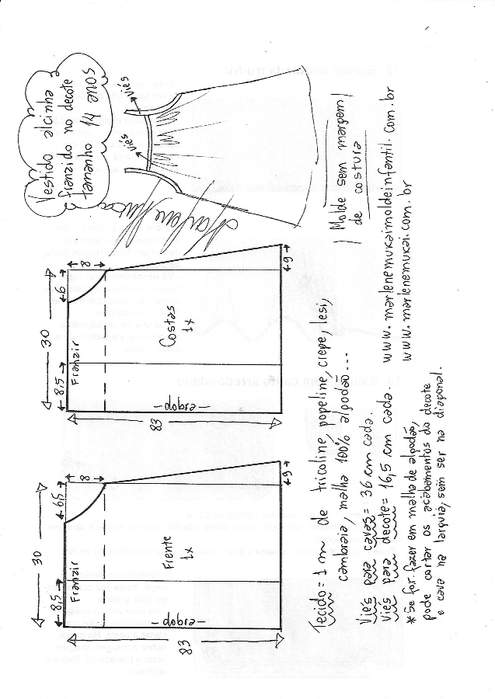 Vestido alcinha
franzido no decote
tamanho 14 anos
viés
viés
Molde sem margem
de costura
30
8,5
6,5
8
Franzir
Frente
1x
dobra
83
6
30
8,5
6
8
Franzir
Costas
1x
dobra
83
6
Tecido = 1 m de tricoline, popeline, crepe, lesi,
cambraia, malha 100% algodão...
Viés para cavas = 36 cm cada.
Viés para decote = 16,5 cm cada.
* Se for fazer em malha de algodão,
pode cortar os acabamentos do decote
e cava na largura, sem ser na diagonal.
www.marlenemukaimoldeinfantil.com.br
www.marlenemukai.com.br